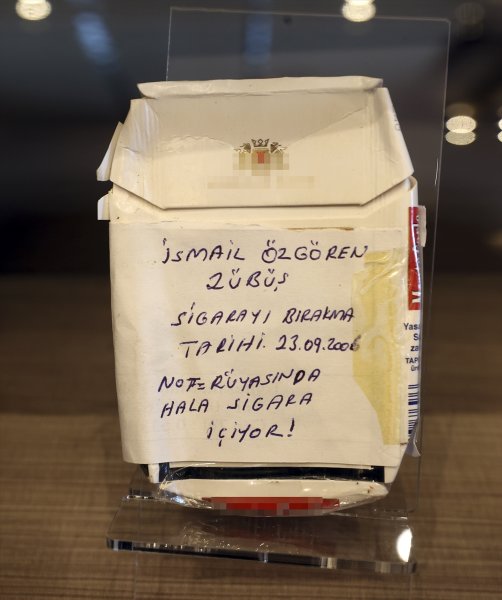 İSMAİL ÖZGÖREN
ZÜBÜŞ
SİGARAYI BIRAKMA
TARİHİ. 23.09.2006
NOT= RÜYASINDA
HALA SİGARA
İÇİYOR!
Yasa